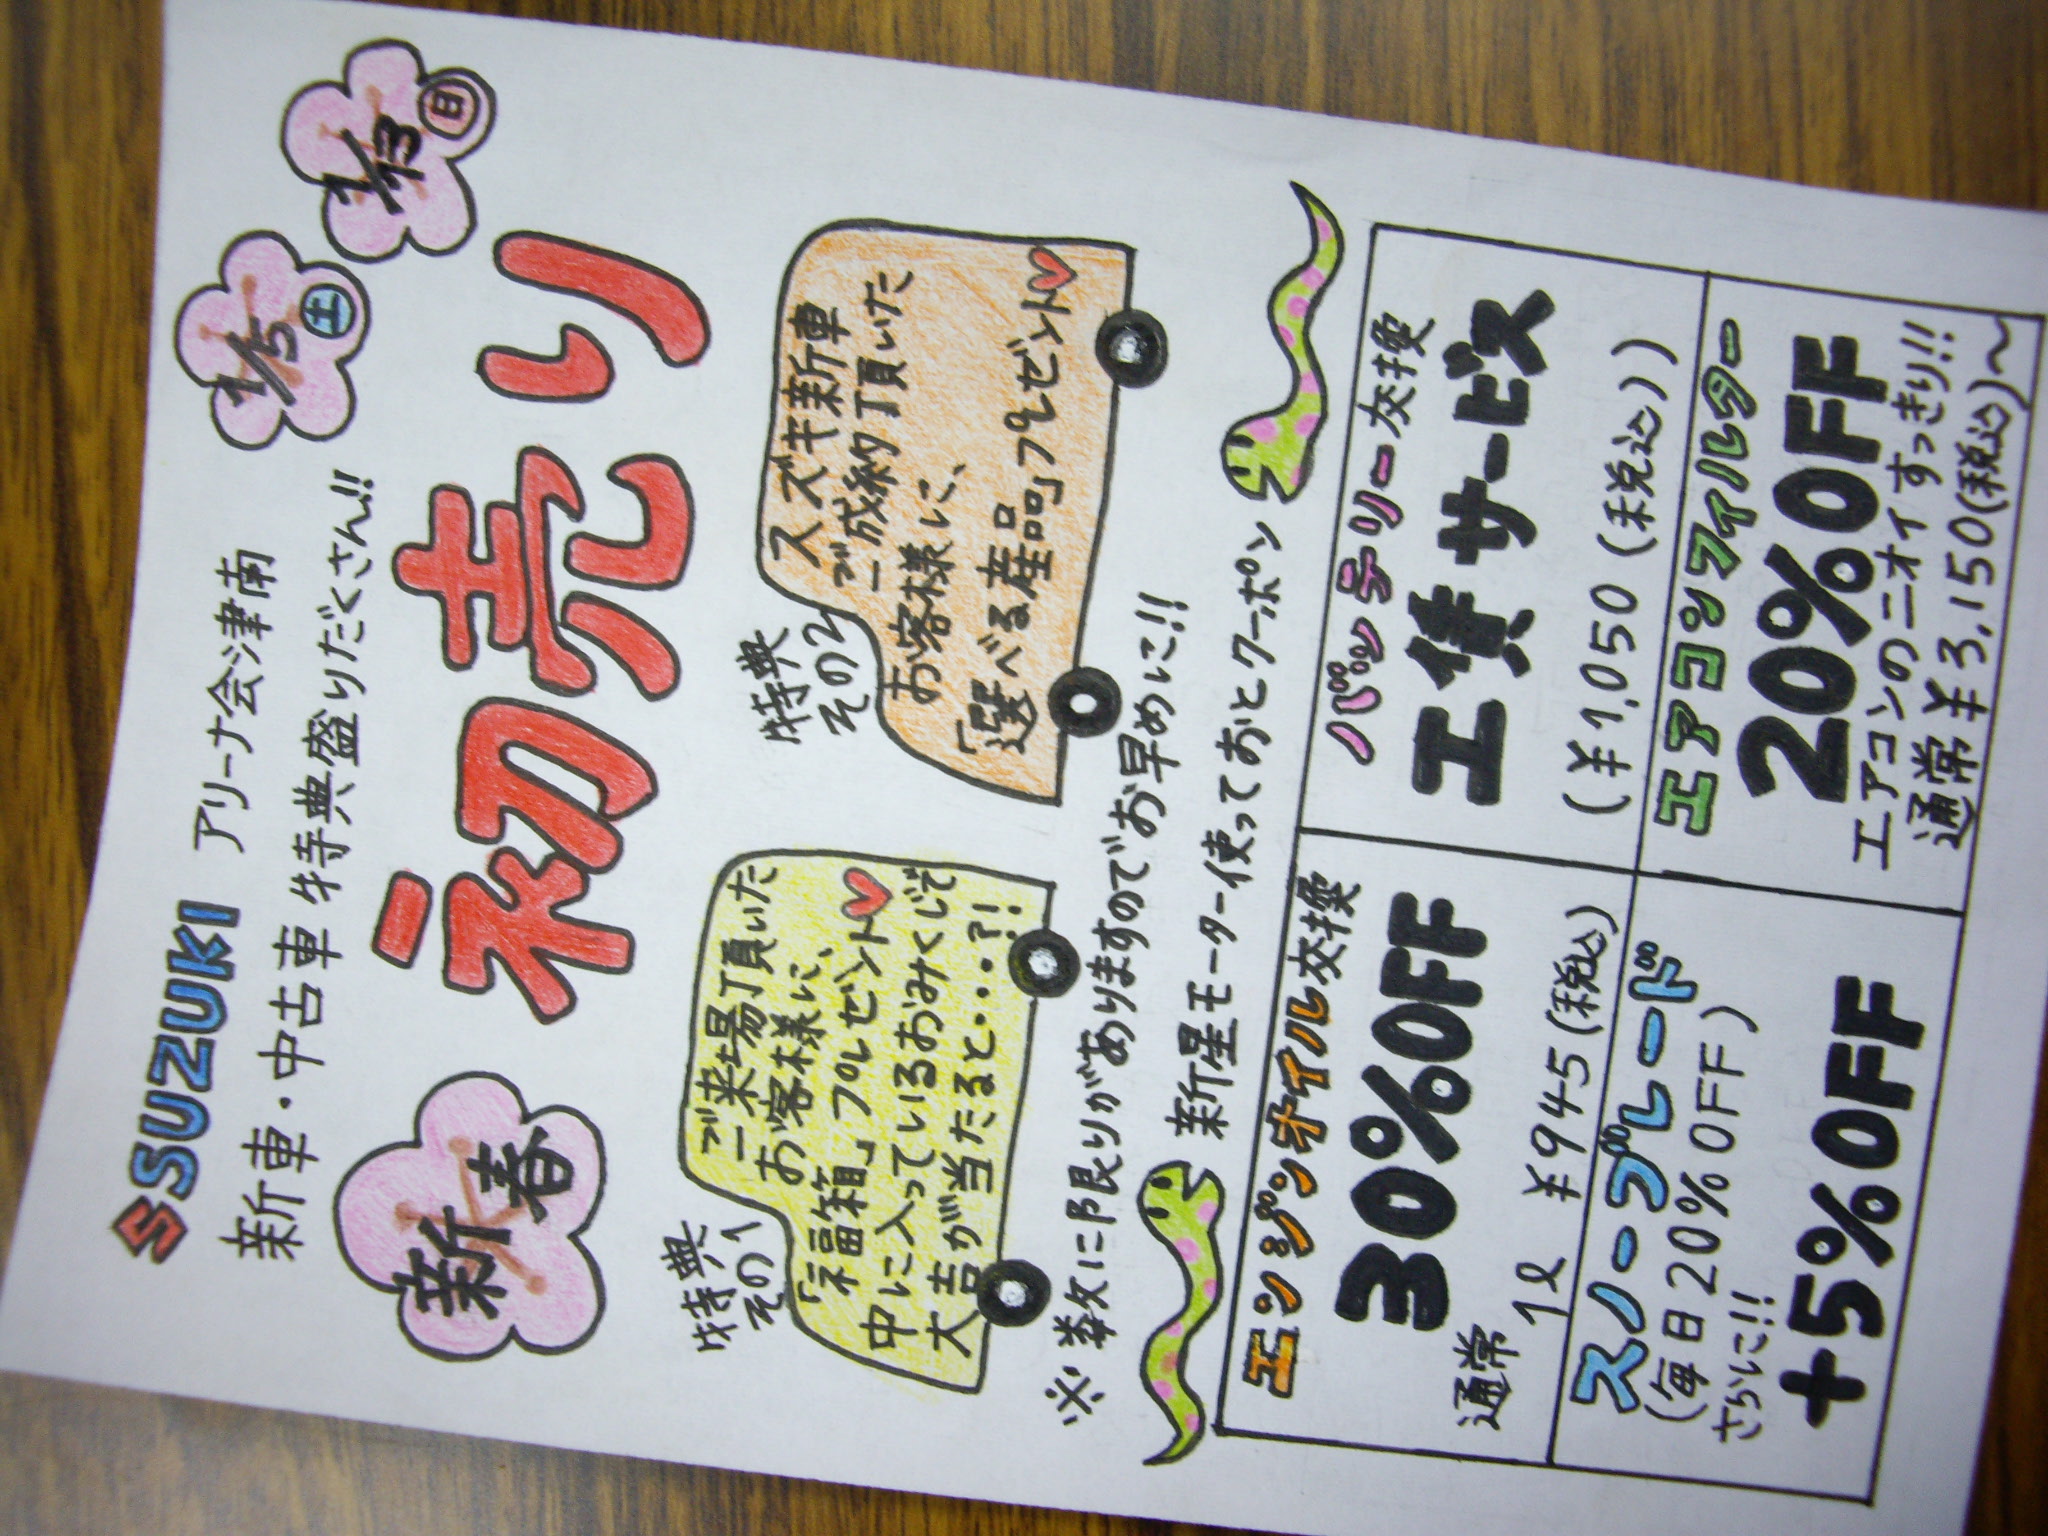 SUZUKI アリーナ会津南
新車・中古車 特典盛りだくさん!!
1/5 土
1/13 日
新春
初売り
特典
その1
ご来場頂いた
お客様に、
「福箱」プレゼント
中に入っているおみくじで
大吉が当たると・・・?!
特典
その2
スズキ新車
ご成約頂いた
お客様に、
「選べる産品」プレゼント
※数に限りがありますのでお早めに!!
新星モーター使っておとクーポン
エンジンオイル交換
30%OFF
通常 1ℓ ¥945(税込)
バッテリー交換
工賃サービス
(¥1,050(税込))
スノーブレード
(毎日20%OFF)
さらに!!
+5%OFF
エアコンフィルター
20%OFF
エアコンのニオイすっきり!!
通常¥3,150(税込)〜